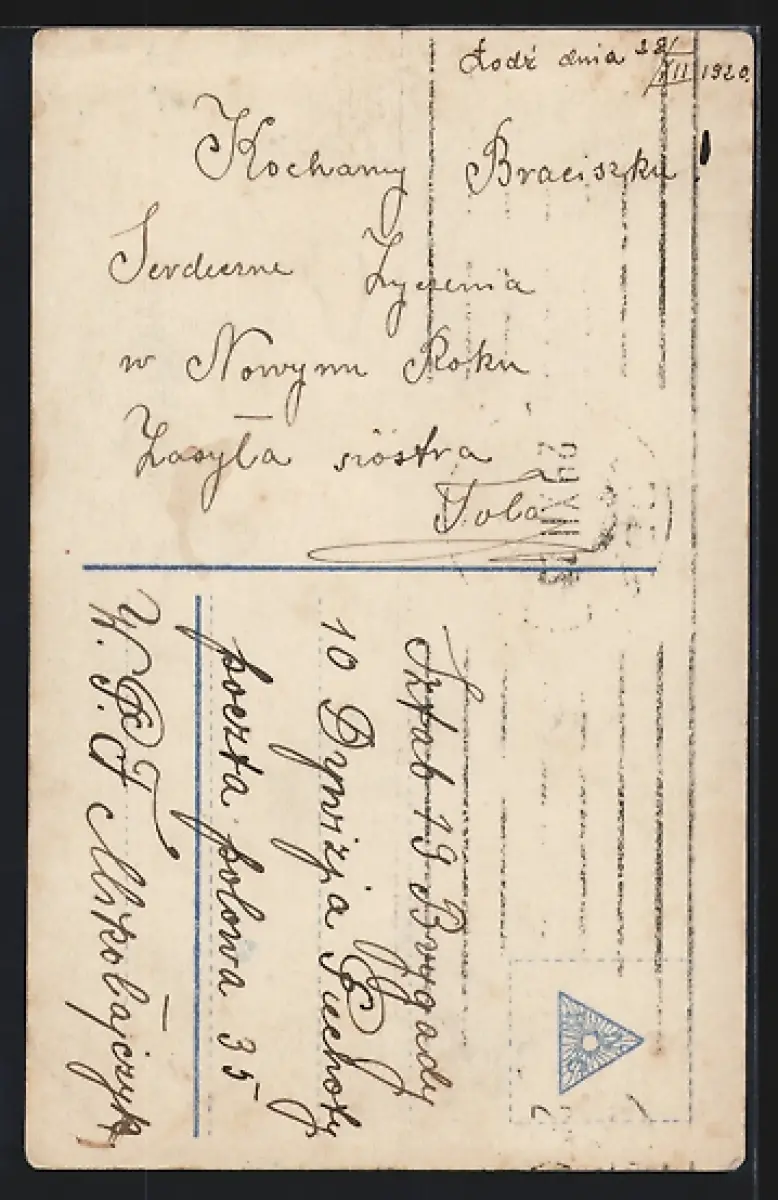 Łodź dnia 28/XII 1920.
Kochany Braciszku!
Serdeczne Życzenia
w Nowym Roku
Zasyła siostra
Tola
Sztab 19 Brygady
10 Dywizja Piechoty
poczta polowa 35
W. P. F Mikołajczyk